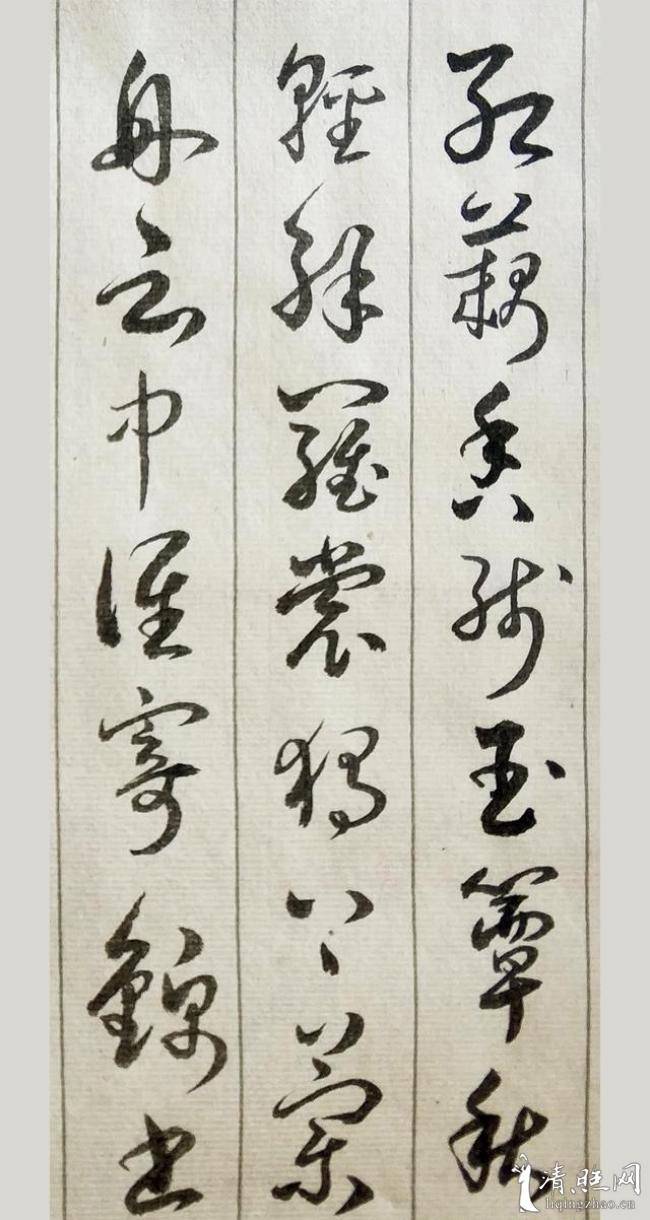 红藕香残玉簟秋
轻解罗裳独上兰
舟云中谁寄锦书
清旺网
liqingzhao.cn